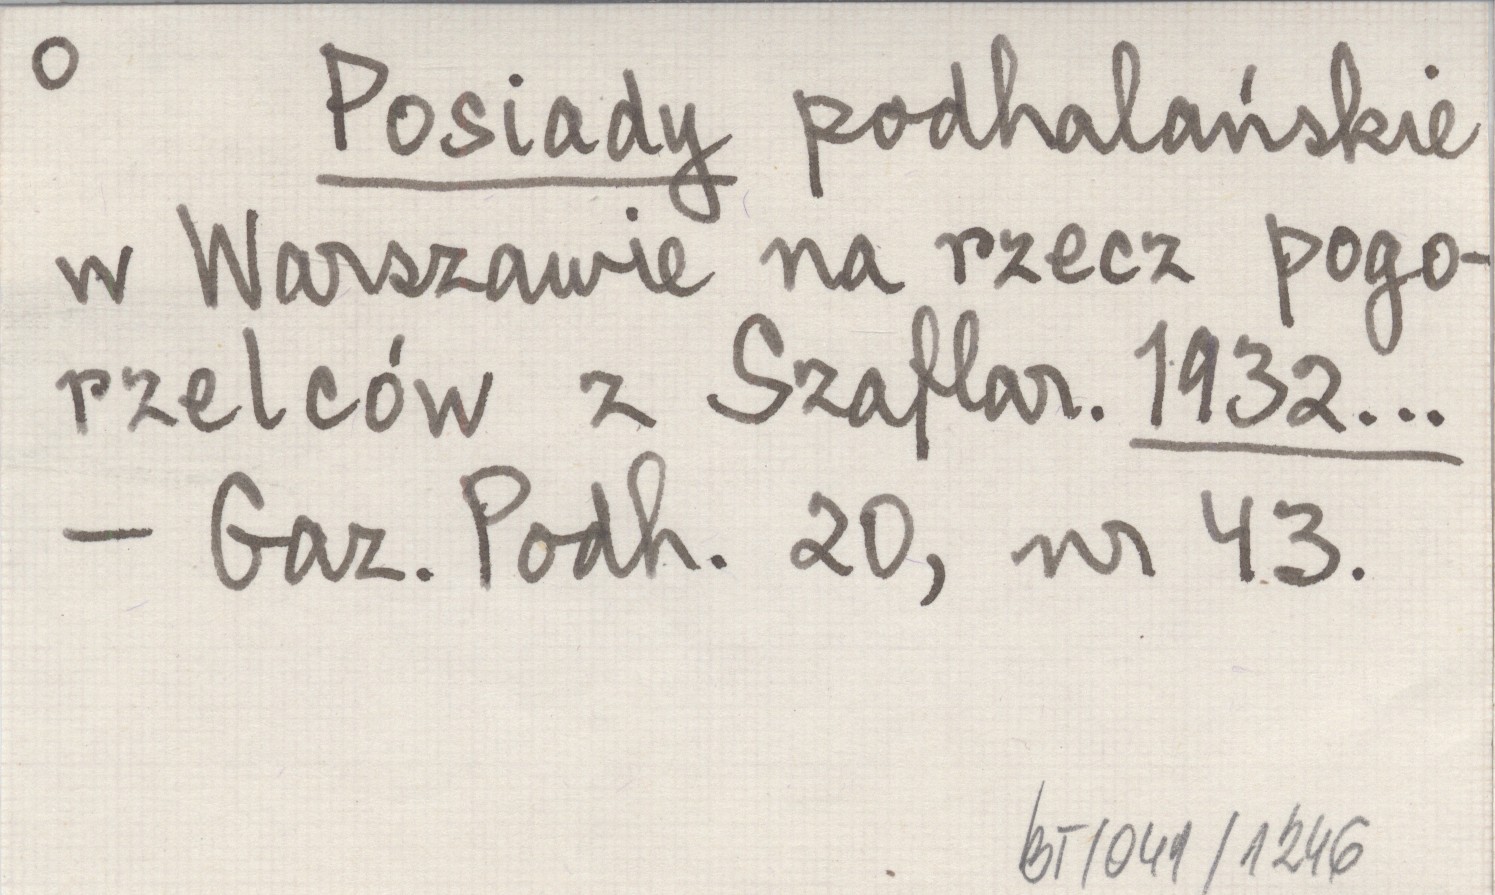 o Posiady podhalańskie
w Warszawie na rzecz pogo-
rzelców z Szaflar. 1932...
— Gaz. Podh. 20, nr 43.
BT/041/1246